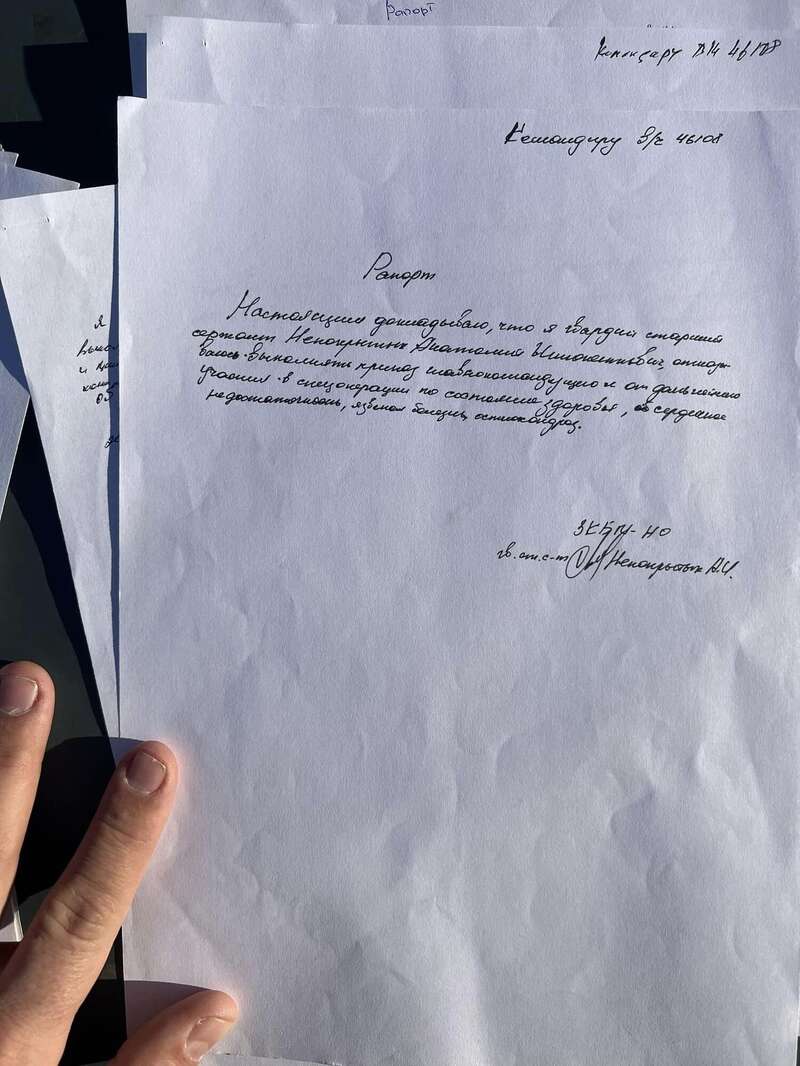 Рапорт
Командиру В/Ч 46108
Командиру В/Ч 46108
Рапорт
Настоящим докладываю, что я гвардии старший
сержант Непокрытых Анатолий Иннокентьевич, отказы-
ваюсь выполнять приказ главнокомандующего и от дальнейшего
участия в спецоперации по состоянию здоровья,
недостаточность, язвенная болезнь, остеохондроз.
гв. ст. с-т Непокрытых А.И.
Я
и